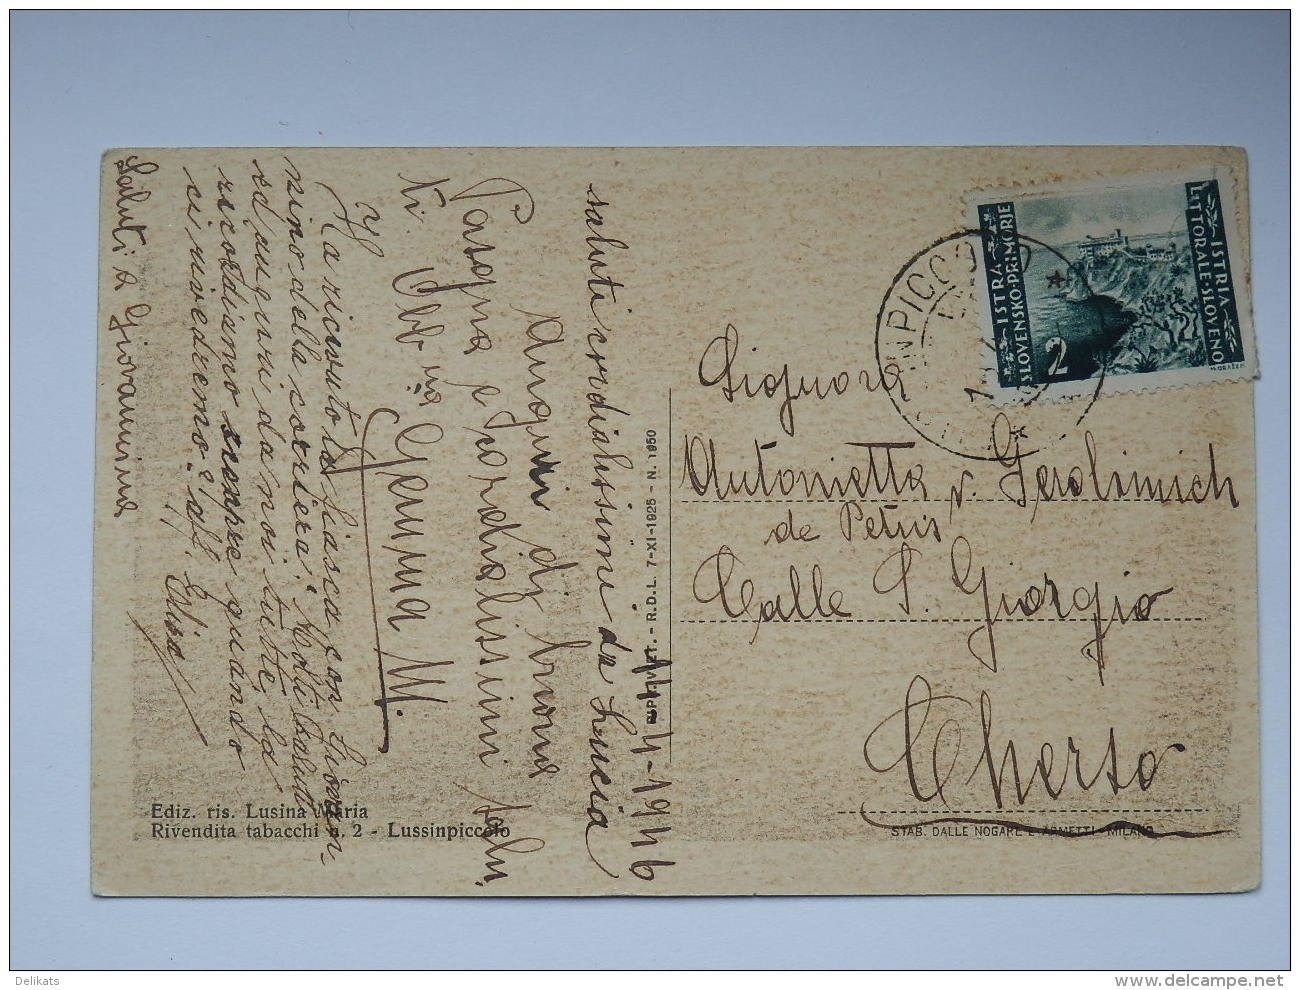 17-4-1946
Auguri di buona
Pasqua e cordialissimi salu.
ti Obb.ma
Gemma M.
saluti cordialissimi da Lucia
Ha ricevuto la fiasca con Giovan-
nino della corriera? Molti saluti
ed auguri da noi tutte, la
ricordiamo sempre quando
ci rivedremo? aff. Elisa
Saluti a Giovannina
Ediz. ris. Lusina Maria
Rivendita tabacchi n. 2 - Lussinpiccolo
RIP. VIET. - R.D.L. 7-XI-1925 - N. 1950
ISTRA
SLOVENSKO-PRIMORJE
ISTRIA
LITTORALE-SLOVENO
2
Signora
Antonietta v. Gerolimich
de Petris
Calle S. Giorgio
Cherso
STAB. DALLE NOGARE E ARMETTI - MILANO
Delikats
www.delcampe.net